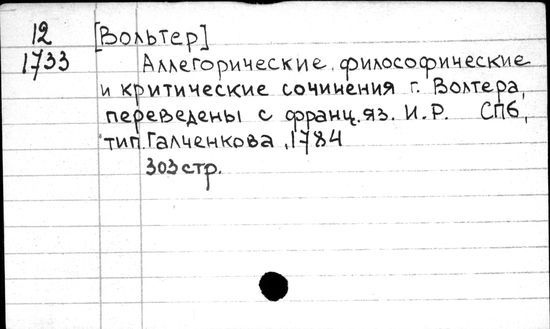 12 [Вольтер]
1733 Аллегорические, философические
и критические сочинения г. Волтера,
переведены с франц. яз. И.Р. СПб,
тип. Галченкова, 1784
303 стр.